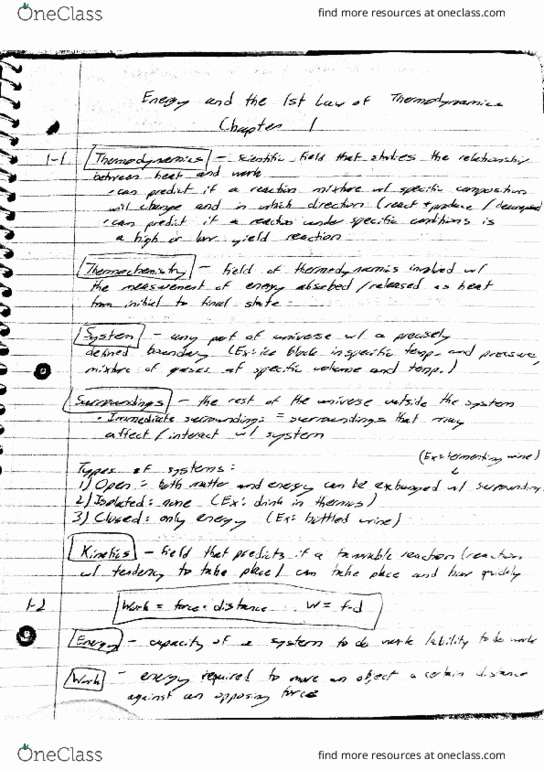 OneClass
find more resources at oneclass.com
Energy and the 1st Law of Thermodynamics
Chapter 1
1-1 Thermodynamics - scientific field that studies the relationship
between heat and work
• can predict if a reaction mixture w/ specific composition
will change and in which direction (react + produce / decompose)
• can predict if a reaction under specific conditions is
a high or low yield reaction
Thermochemistry - field of thermodynamics involved w/
the measurement of energy absorbed / released as heat
from initial to final state
System - any part of universe w/ a precisely
defined boundary (Ex: ice block in specific temp. and pressure,
mixture of gases at specific volume and temp.)
Surroundings - the rest of the universe outside the system
• Immediate surroundings = surroundings that may
affect / interact w/ system
(Ex: fermenting wine)
Types of systems:
1) Open: both matter and energy can be exchanged w/ surroundings
2) Isolated: none (Ex: drink in thermos)
3) Closed: only energy (Ex: bottled wine)
Kinetics - field that predicts if a favorable reaction (reaction
w/ tendency to take place) can take place and how quickly
1-2 Work = force · distance w = f·d
Energy - capacity of a system to do work / ability to do work
Work - energy required to move an object a certain distance
against an opposing force
OneClass
find more resources at oneclass.com